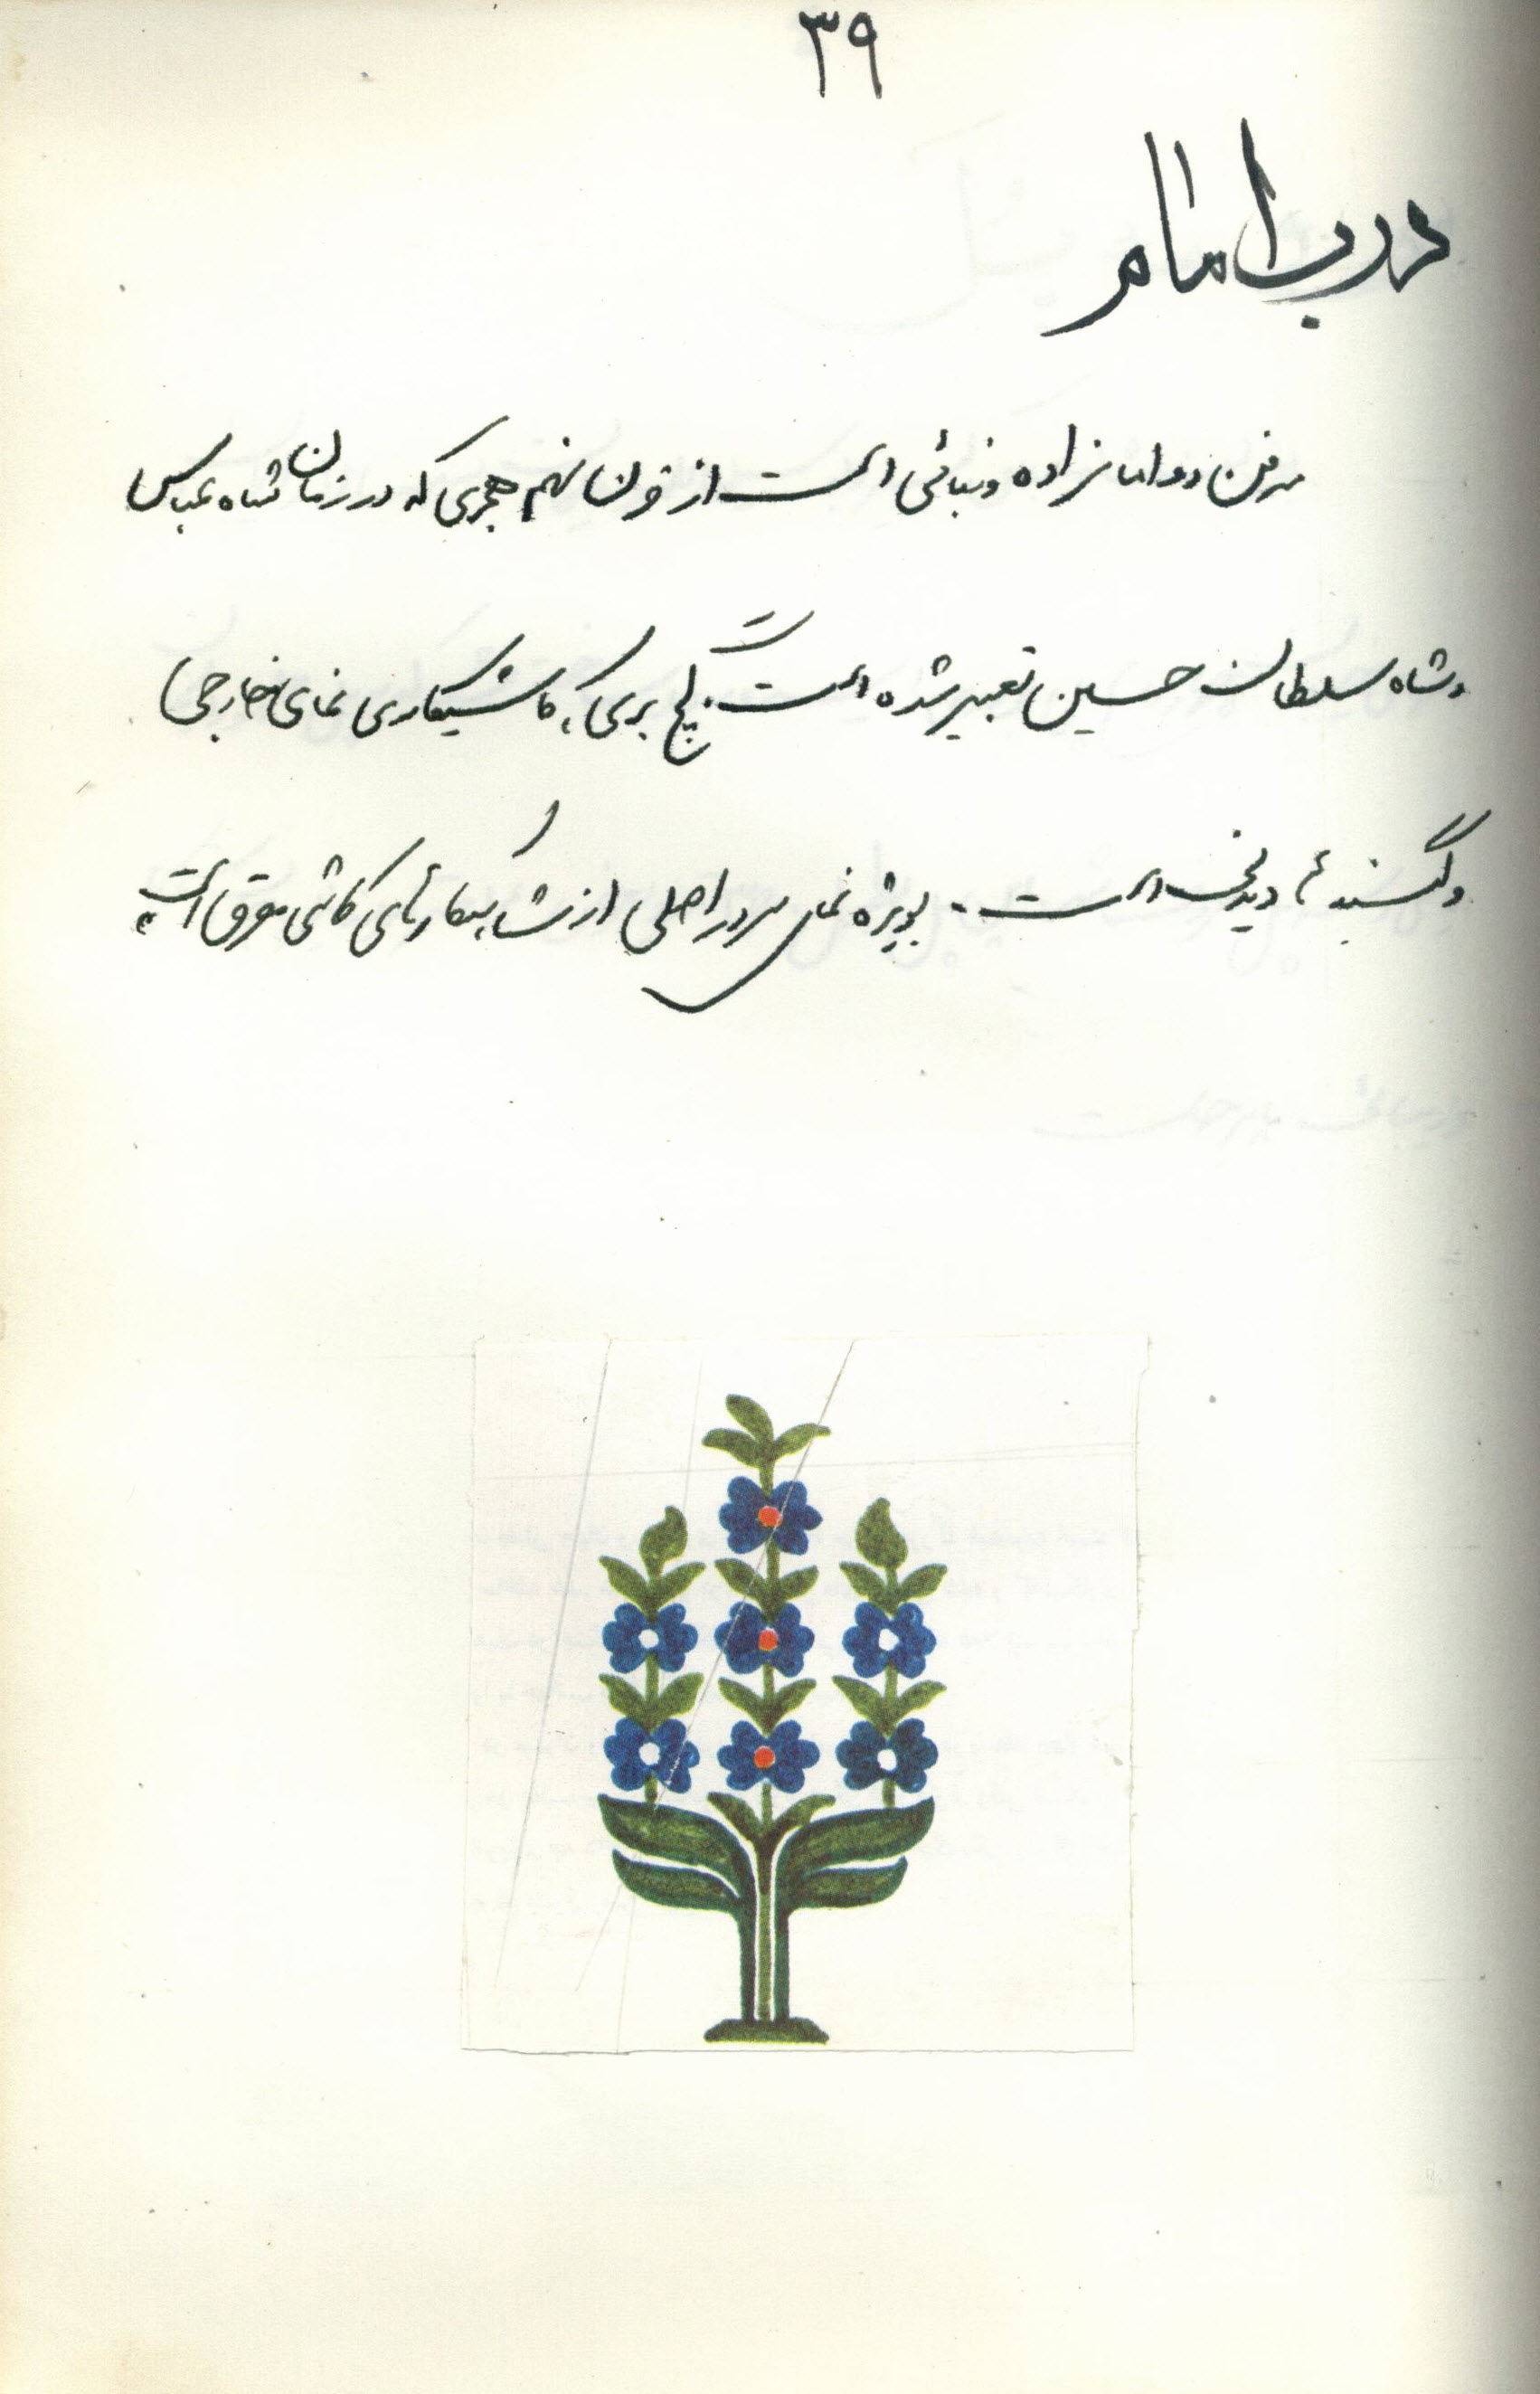 ۳۹
درب امام
مدفن دو امامزاده و بنائی است از قرن نهم هجری که در زمان شاه عباس
و شاه سلطان حسین تعمیر شده است. گچ بری، کاشیکاری نمای خارجی
و گنبد ها دیدنی است. بویژه نمای سردر اصلی از شاهکارهای کاشی معرق است.